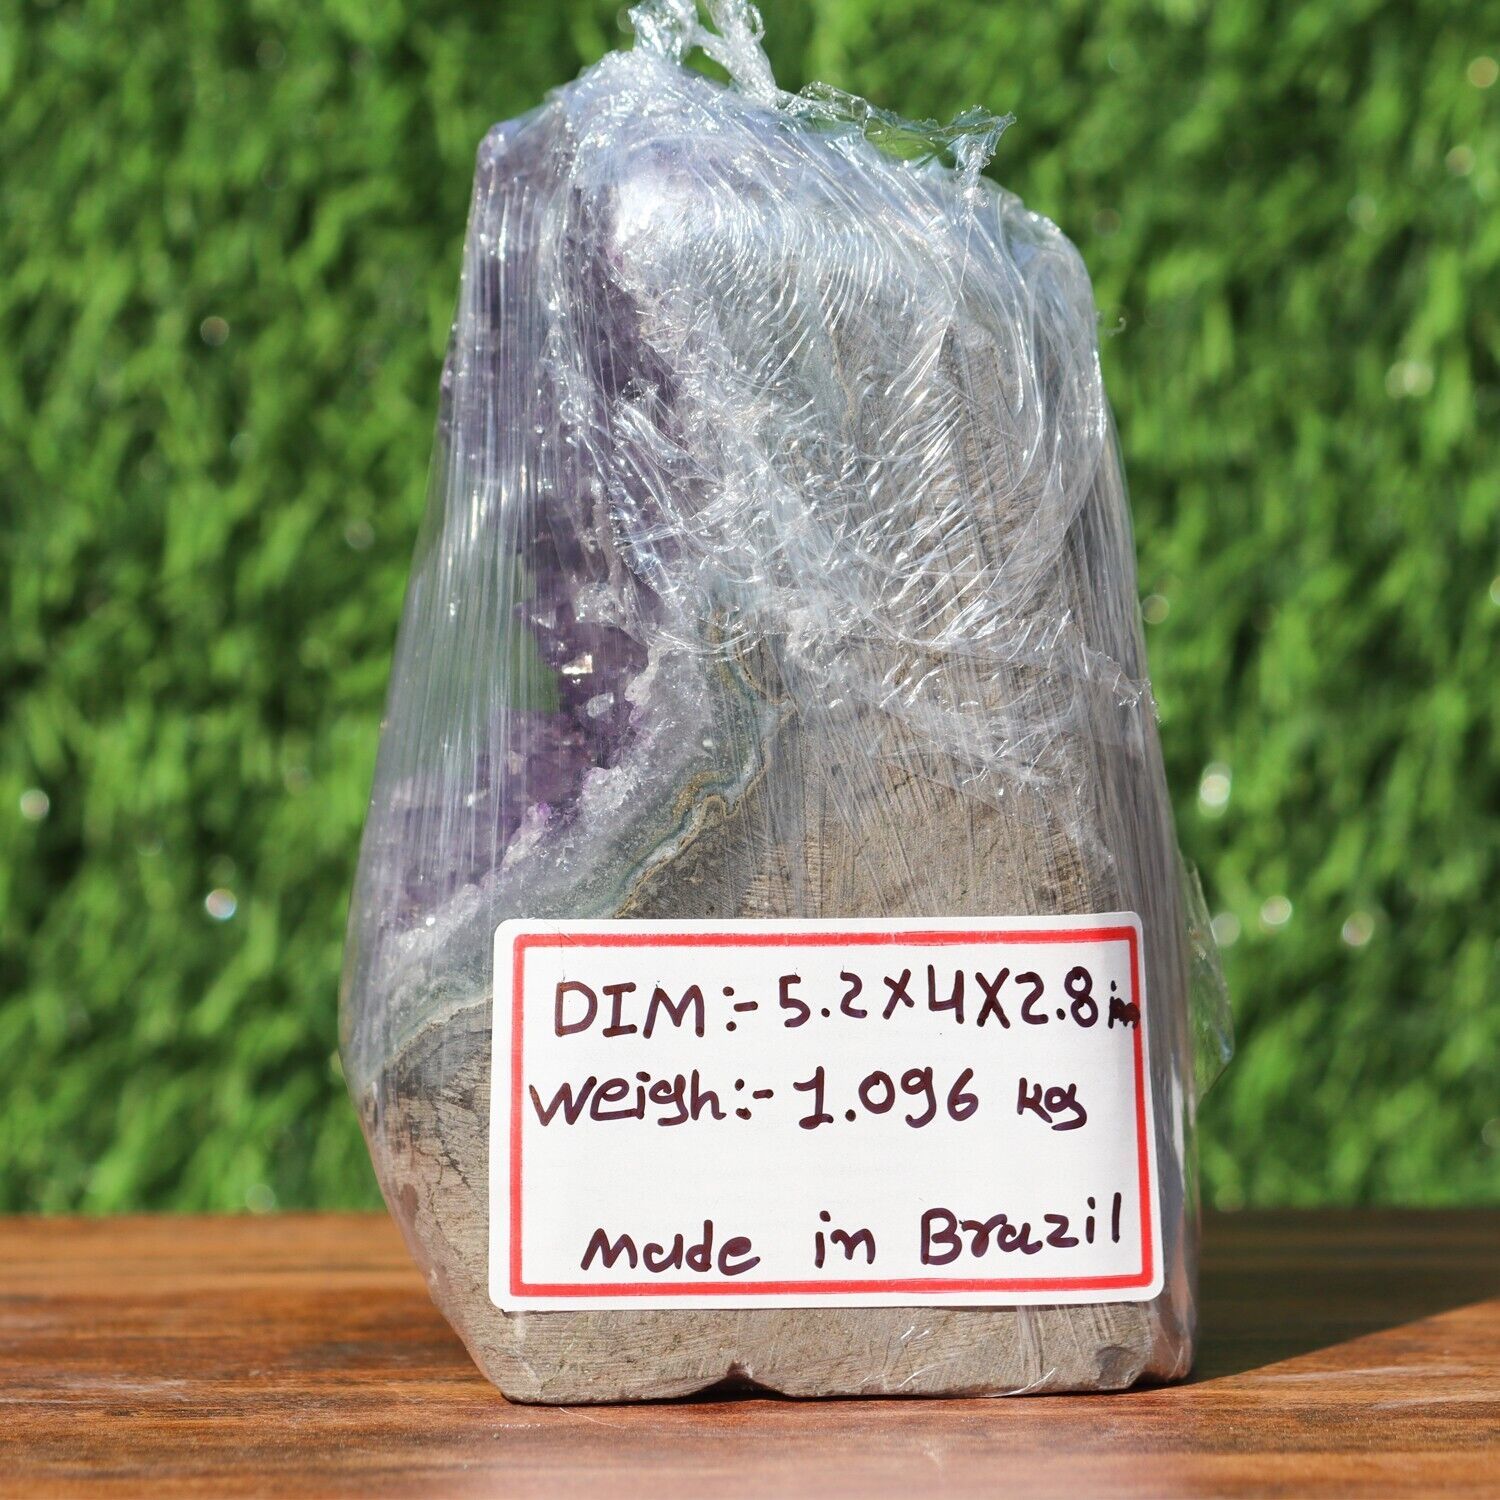 DIM:- 5.2X4X2.8 in
Weigh:- 1.096 kg
Made in Brazil